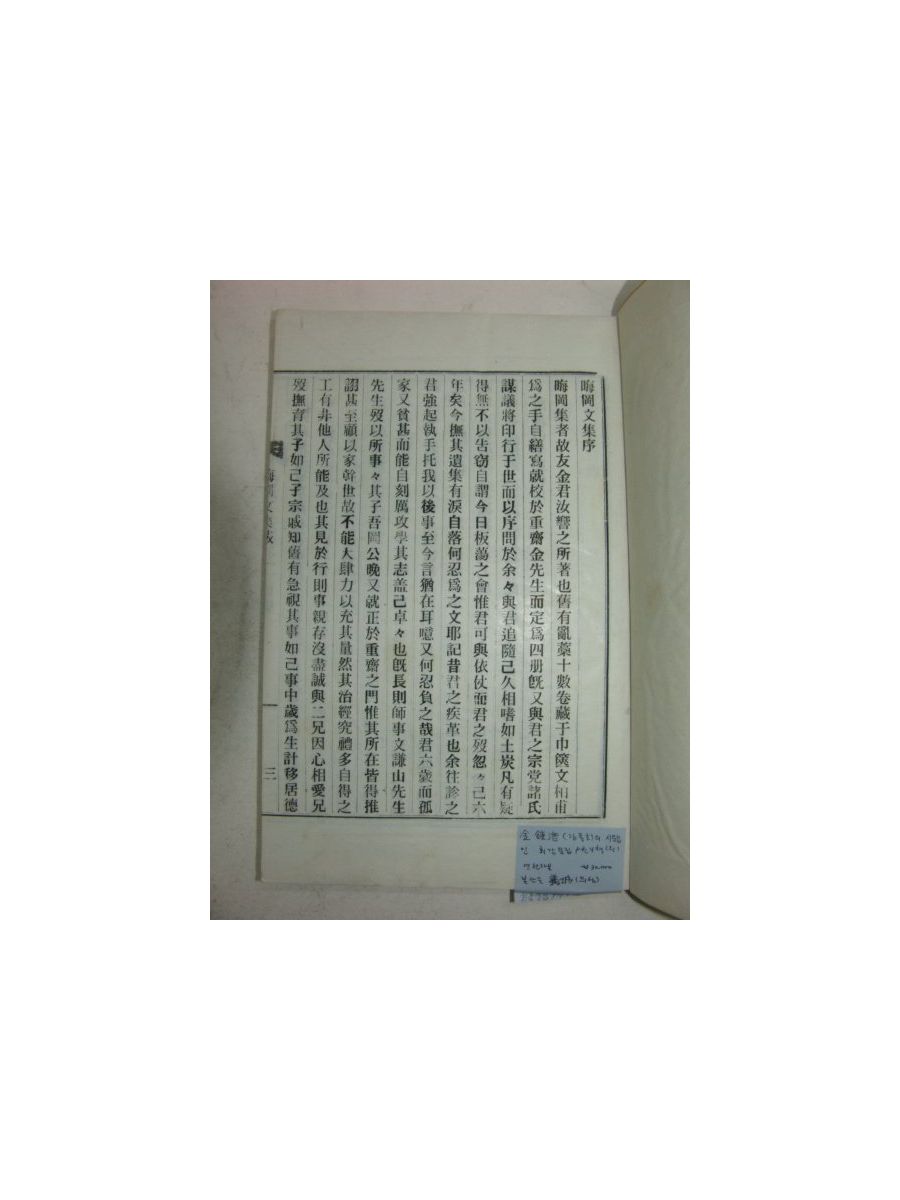 晦岡文集序
晦岡集者故友金君汝響之所著也舊有亂藁十數卷藏于巾篋文相甫
爲之手自繕寫就校於重齋金先生而定爲四册旣又與君之宗党諸氏
謀議將印行于世而以序問於余々與君追隨己久相嗜如土炭凡有疑
得無不以告窃自謂今日板蕩之會惟君可與依仗而君之歿忽々己六
年矣今撫其遺集有淚自落何忍爲之文耶記昔君之疾革也余往診之
君強起執手托我以後事至今言猶在耳噫又何忍負之哉君六歲而孤
家又貧甚而能自刻厲攻學其志盖己卓々也旣長則師事文謙山先生
先生歿以所事々其子吾岡公晚又就正於重齋之門惟其所在皆得推
詡甚至顧以家幹世故不能大肆力以充其量然其治經究禮多自得之
工有非他人所能及也其見於行則事親存沒盡誠與二兄因心相愛兄
歿撫育其子如己子宗戚知舊有急視其事如己事中歲爲生計移居德
三